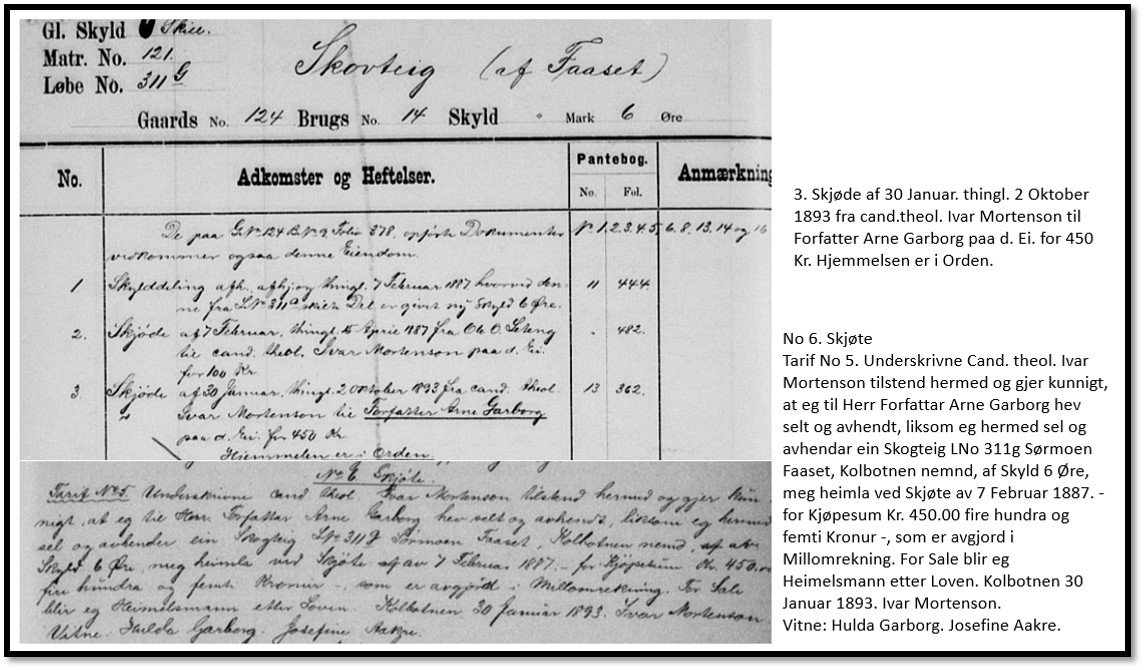 Gl. Skyld Skill.
Matr. No. 121.
Løbe No. 311 G
Skovteig (af Faaset)
Gaards No. 124 Brugs No. 14 Skyld " Mark 6 Øre
No.
Adkomster og Heftelser.
Pantebog.
No. Fol.
Anmærkning
De paa GNo 124 BNo 9, Folio 378, opførte Dokumenter No 1, 2, 3, 4, 5, 6, 8, 13, 14 og 16
vedkommer ogsaa denne Eiendom.
1 Skylddeling afh., afhj. og thingl. 7 Februar 1887 hvorved den- 11 444.
ne fra LNo 311a Del er givet ny Skyld 6 Øre.
2. Skjøde af 7 Februar, thingl. 15 April 1887 fra Ole O. Eeteng " 482.
til cand. theol. Ivar Mortenson paa d. Ei.
for 100 Kr
3 Skjøde af 30 Januar, thingl. 2 Oktober 1893 fra cand. theol. 13 362.
" Ivar Mortenson til Forfatter Arne Garborg
paa d. Ei. for 450 Kr.
Hjemmelen er i Orden.
No 6. Skjøte.
Tarif No 5. Underskrivne Cand. theol. Ivar Mortenson tilstend hermed og gjer kun-
nigt, at eg til Herr. Forfattar Arne Garborg hev selt og avhendt, liksom eg hermed
sel og avhender ein Skogteig LNo 311g Sørmoen Faaset, Kolbotnen nemd, af
Skyld 6 Øre, meg heimla ved Skjøte af av 7 Februar 1887. - for Kjøpesum Kr. 450.00
fire hundra og femti Kronur -, som er avgjord i Millomrekning. For Sale
blir eg Heimelsmann etter Loven. Kolbotnen 30 Januar 1893. Ivar Mortenson.
Vitne. Hulda Garborg. Josefine Aakre.
3. Skjøde af 30 Januar. thingl. 2 Oktober
1893 fra cand.theol. Ivar Mortenson til
Forfatter Arne Garborg paa d. Ei. for 450
Kr. Hjemmelsen er i Orden.
No 6. Skjøte
Tarif No 5. Underskrivne Cand. theol. Ivar
Mortenson tilstend hermed og gjer kunnigt,
at eg til Herr Forfattar Arne Garborg hev
selt og avhendt, liksom eg hermed sel og
avhendar ein Skogteig LNo 311g Sørmoen
Faaset, Kolbotnen nemnd, af Skyld 6 Øre,
meg heimla ved Skjøte av 7 Februar 1887. -
for Kjøpesum Kr. 450.00 fire hundra og
femti Kronur -, som er avgjord i
Millomrekning. For Sale blir eg
Heimelsmann etter Loven. Kolbotnen 30
Januar 1893. Ivar Mortenson.
Vitne: Hulda Garborg. Josefine Aakre.